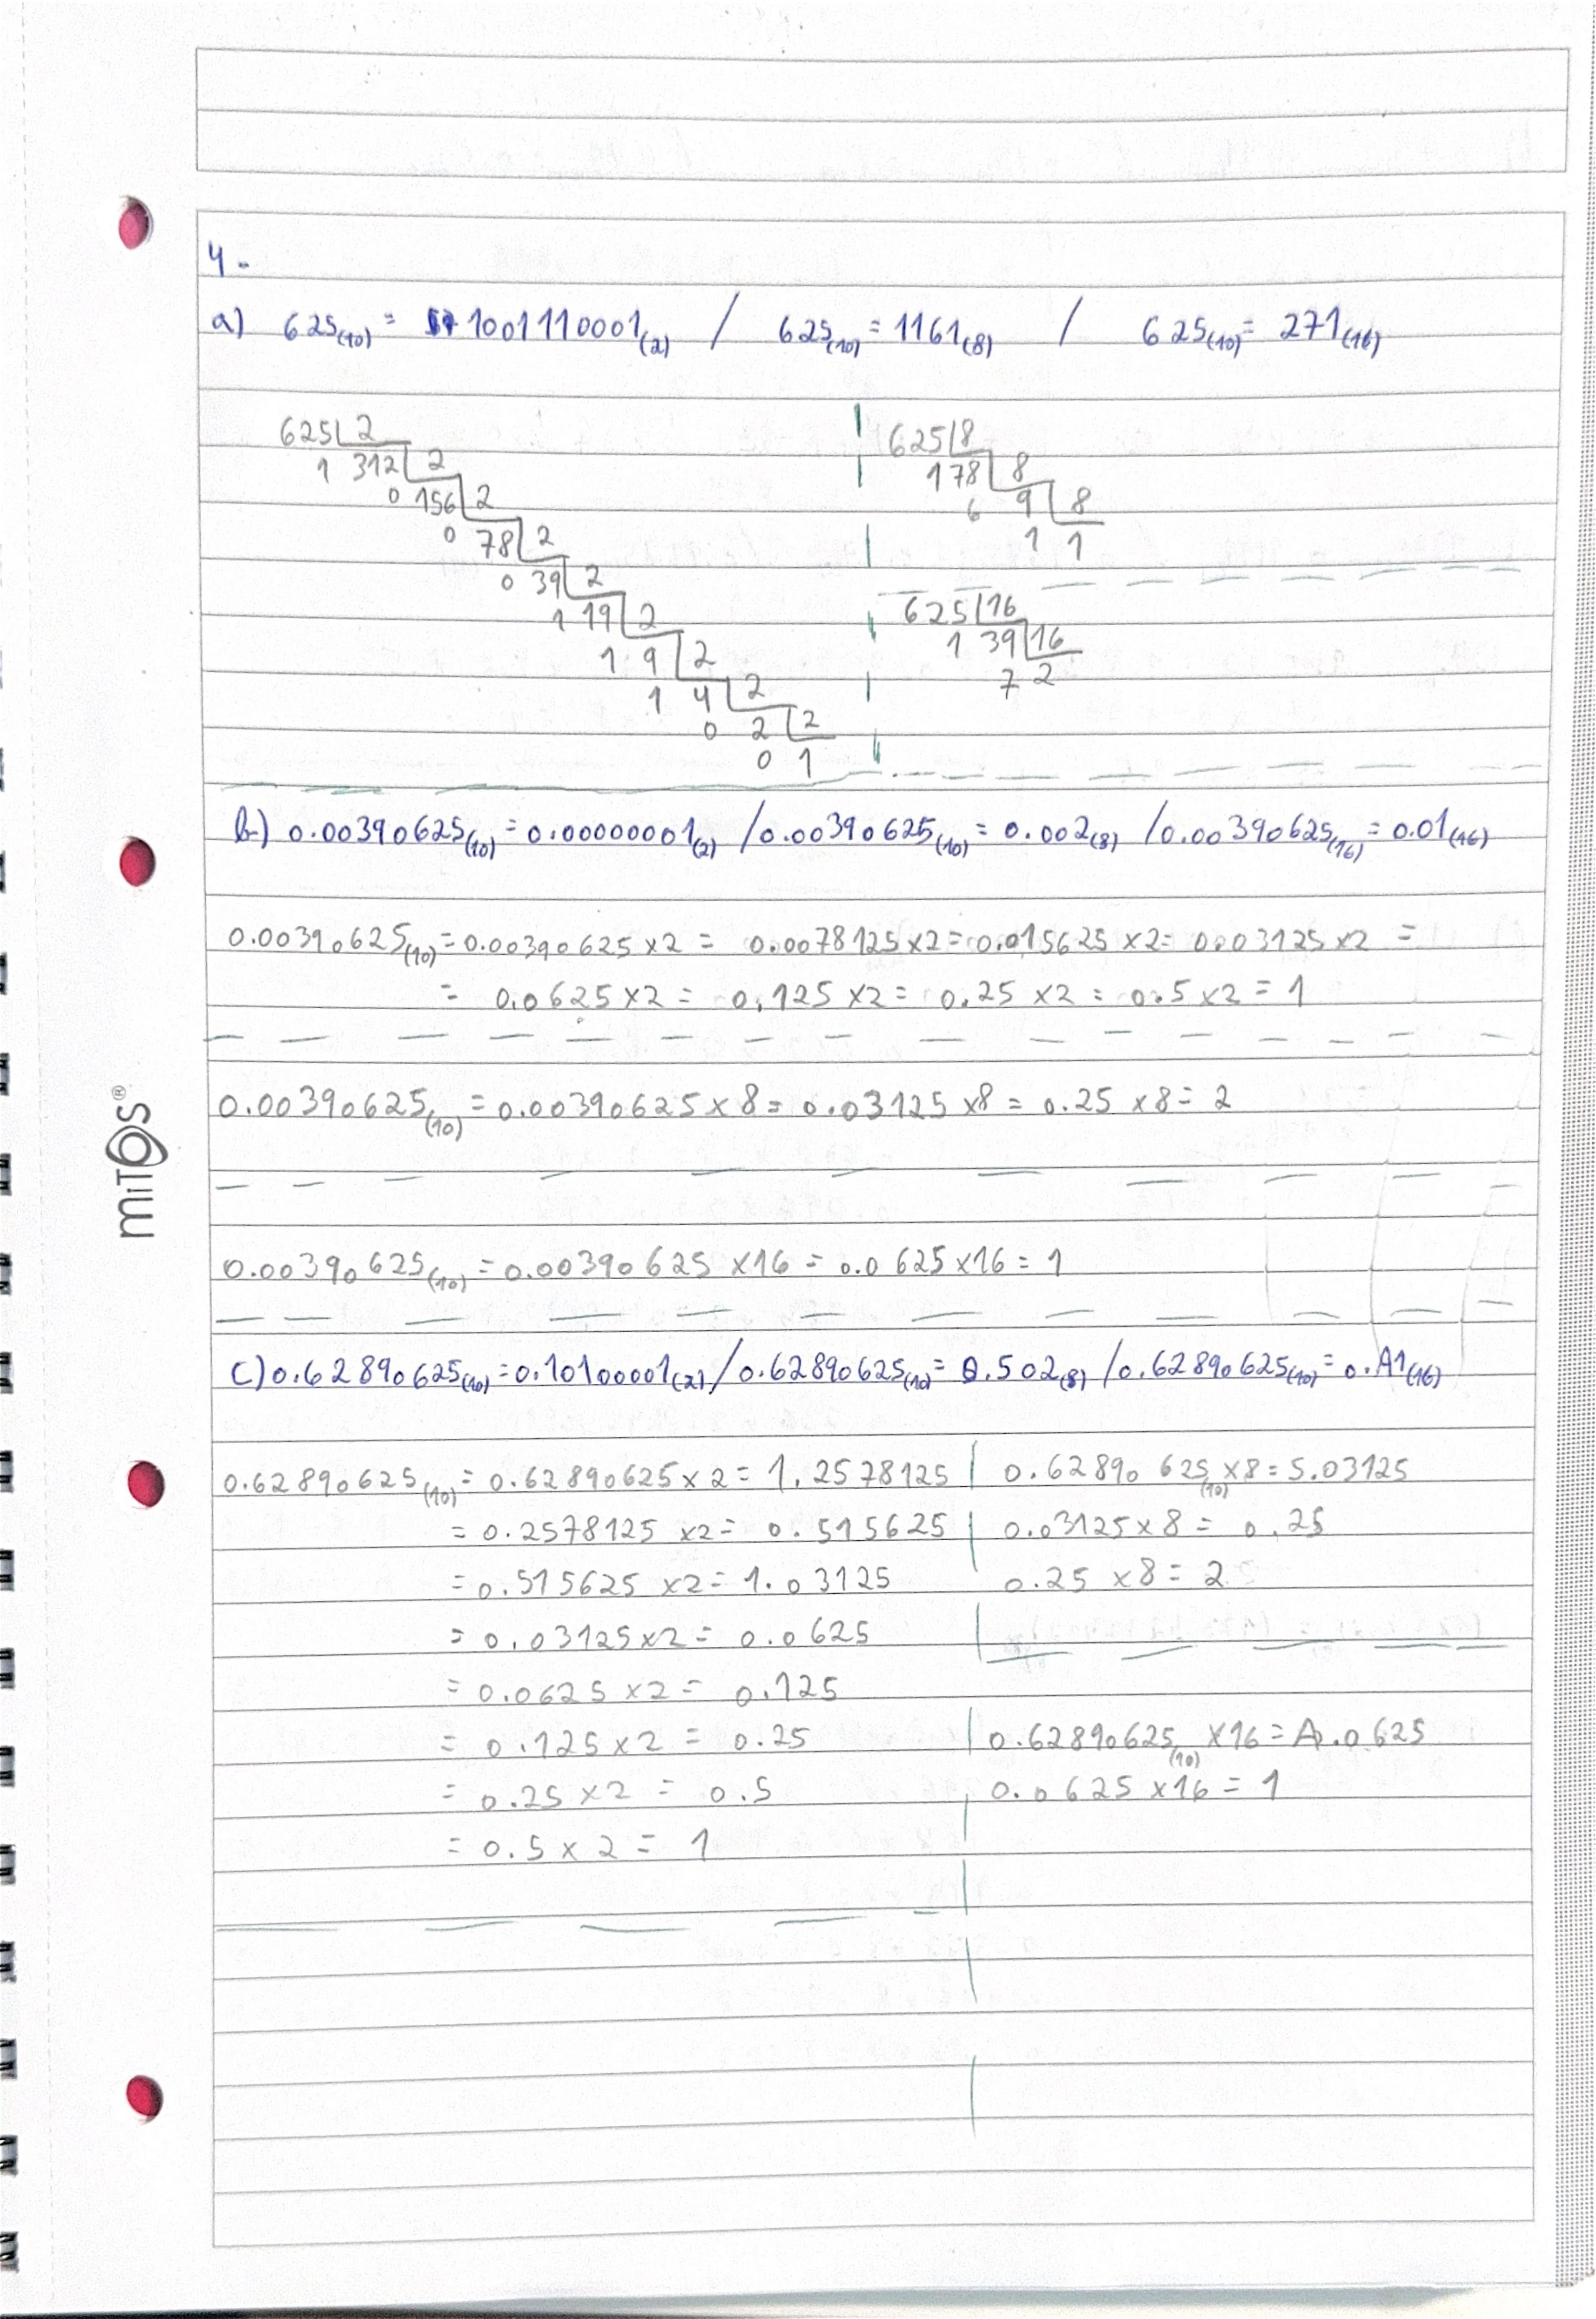 4-
a) 625(10) = 1001110001(2) / 625(10) = 1161(8) / 625(10) = 271(16)
625 2
1 312 2
0 156 2
0 78 2
0 39 2
1 19 2
1 9 2
1 4 2
0 2 2
0 1
625 8
1 78 8
6 9 8
1 1
625 16
1 39 16
7 2
b) 0.00390625(10) = 0.00000001(2) / 0.00390625(10) = 0.002(8) / 0.00390625(16) = 0.01(16)
0.00390625(10) = 0.00390625 x2 = 0.0078125 x2 = 0.015625 x2 = 0.03125 x2 =
= 0.0625 x2 = 0.125 x2 = 0.25 x2 = 0.5 x2 = 1
0.00390625(10) = 0.00390625 x 8 = 0.03125 x8 = 0.25 x8 = 2
0.00390625(10) = 0.00390625 x16 = 0.0625 x16 = 1
c) 0.62890625(10) = 0.10100001(2) / 0.62890625(10) = 0.502(8) / 0.62890625(10) = 0.A1(16)
0.62890625(10) = 0.62890625 x 2 = 1.2578125
= 0.2578125 x2 = 0.515625
= 0.515625 x2 = 1.03125
= 0.03125 x2 = 0.0625
= 0.0625 x2 = 0.125
= 0.125 x2 = 0.25
= 0.25 x2 = 0.5
= 0.5 x 2 = 1
0.62890625(10) x8 = 5.03125
0.03125 x 8 = 0.25
0.25 x8 = 2
0.62890625(10) x16 = A.0625
0.0625 x16 = 1
miTOS®